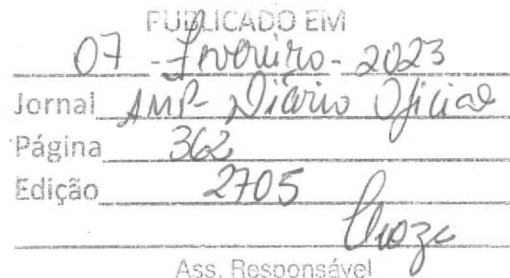 PUBLICADO EM
07 - Fevereiro - 2023
Jornal AMP - Diário Oficial
Página 362
Edição 2705
Ass. Responsável